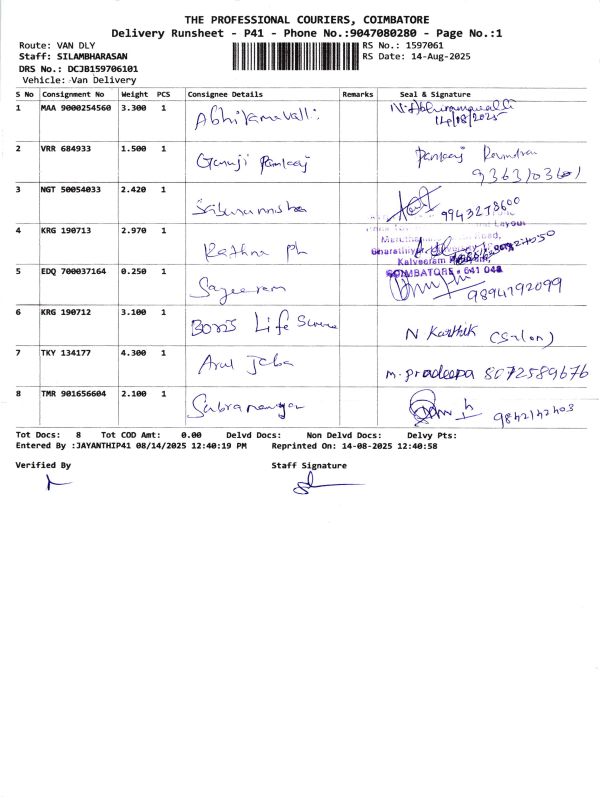 THE PROFESSIONAL COURIERS, COIMBATORE
Delivery Runsheet - P41 - Phone No.:9047080280 - Page No.:1
Route: VAN DLY RS No.: 1597061
Staff: SILAMBHARASAN RS Date: 14-Aug-2025
DRS No.: DCJB159706101
Vehicle: Van Delivery
S No Consignment No Weight PCS Consignee Details Remarks Seal & Signature
1 MAA 9000254560 3.300 1 Abhiramavalli N. Abhiramavalli
14/08/2025
2 VRR 684933 1.500 1 Pankaaj Pankaaj
3 NGT 50054033 2.420 1
4 KRG 190713 2.970 1 Rathna Ph
Kalveeram
COIMBATORE - 641 046
5 EDQ 700037164 0.250 1 Sayeeram 9894792099
6 KRG 190712 3.100 1 Life N Karthik
7 TKY 134177 4.300 1 Arul Jeba M. Pradeepa 8072589676
8 TMR 901656604 2.100 1
Tot Docs: 8 Tot COD Amt: 0.00 Delvd Docs: Non Delvd Docs: Delvy Pts:
Entered By :JAYANTHIP41 08/14/2025 12:40:19 PM Reprinted On: 14-08-2025 12:40:58
Verified By Staff Signature